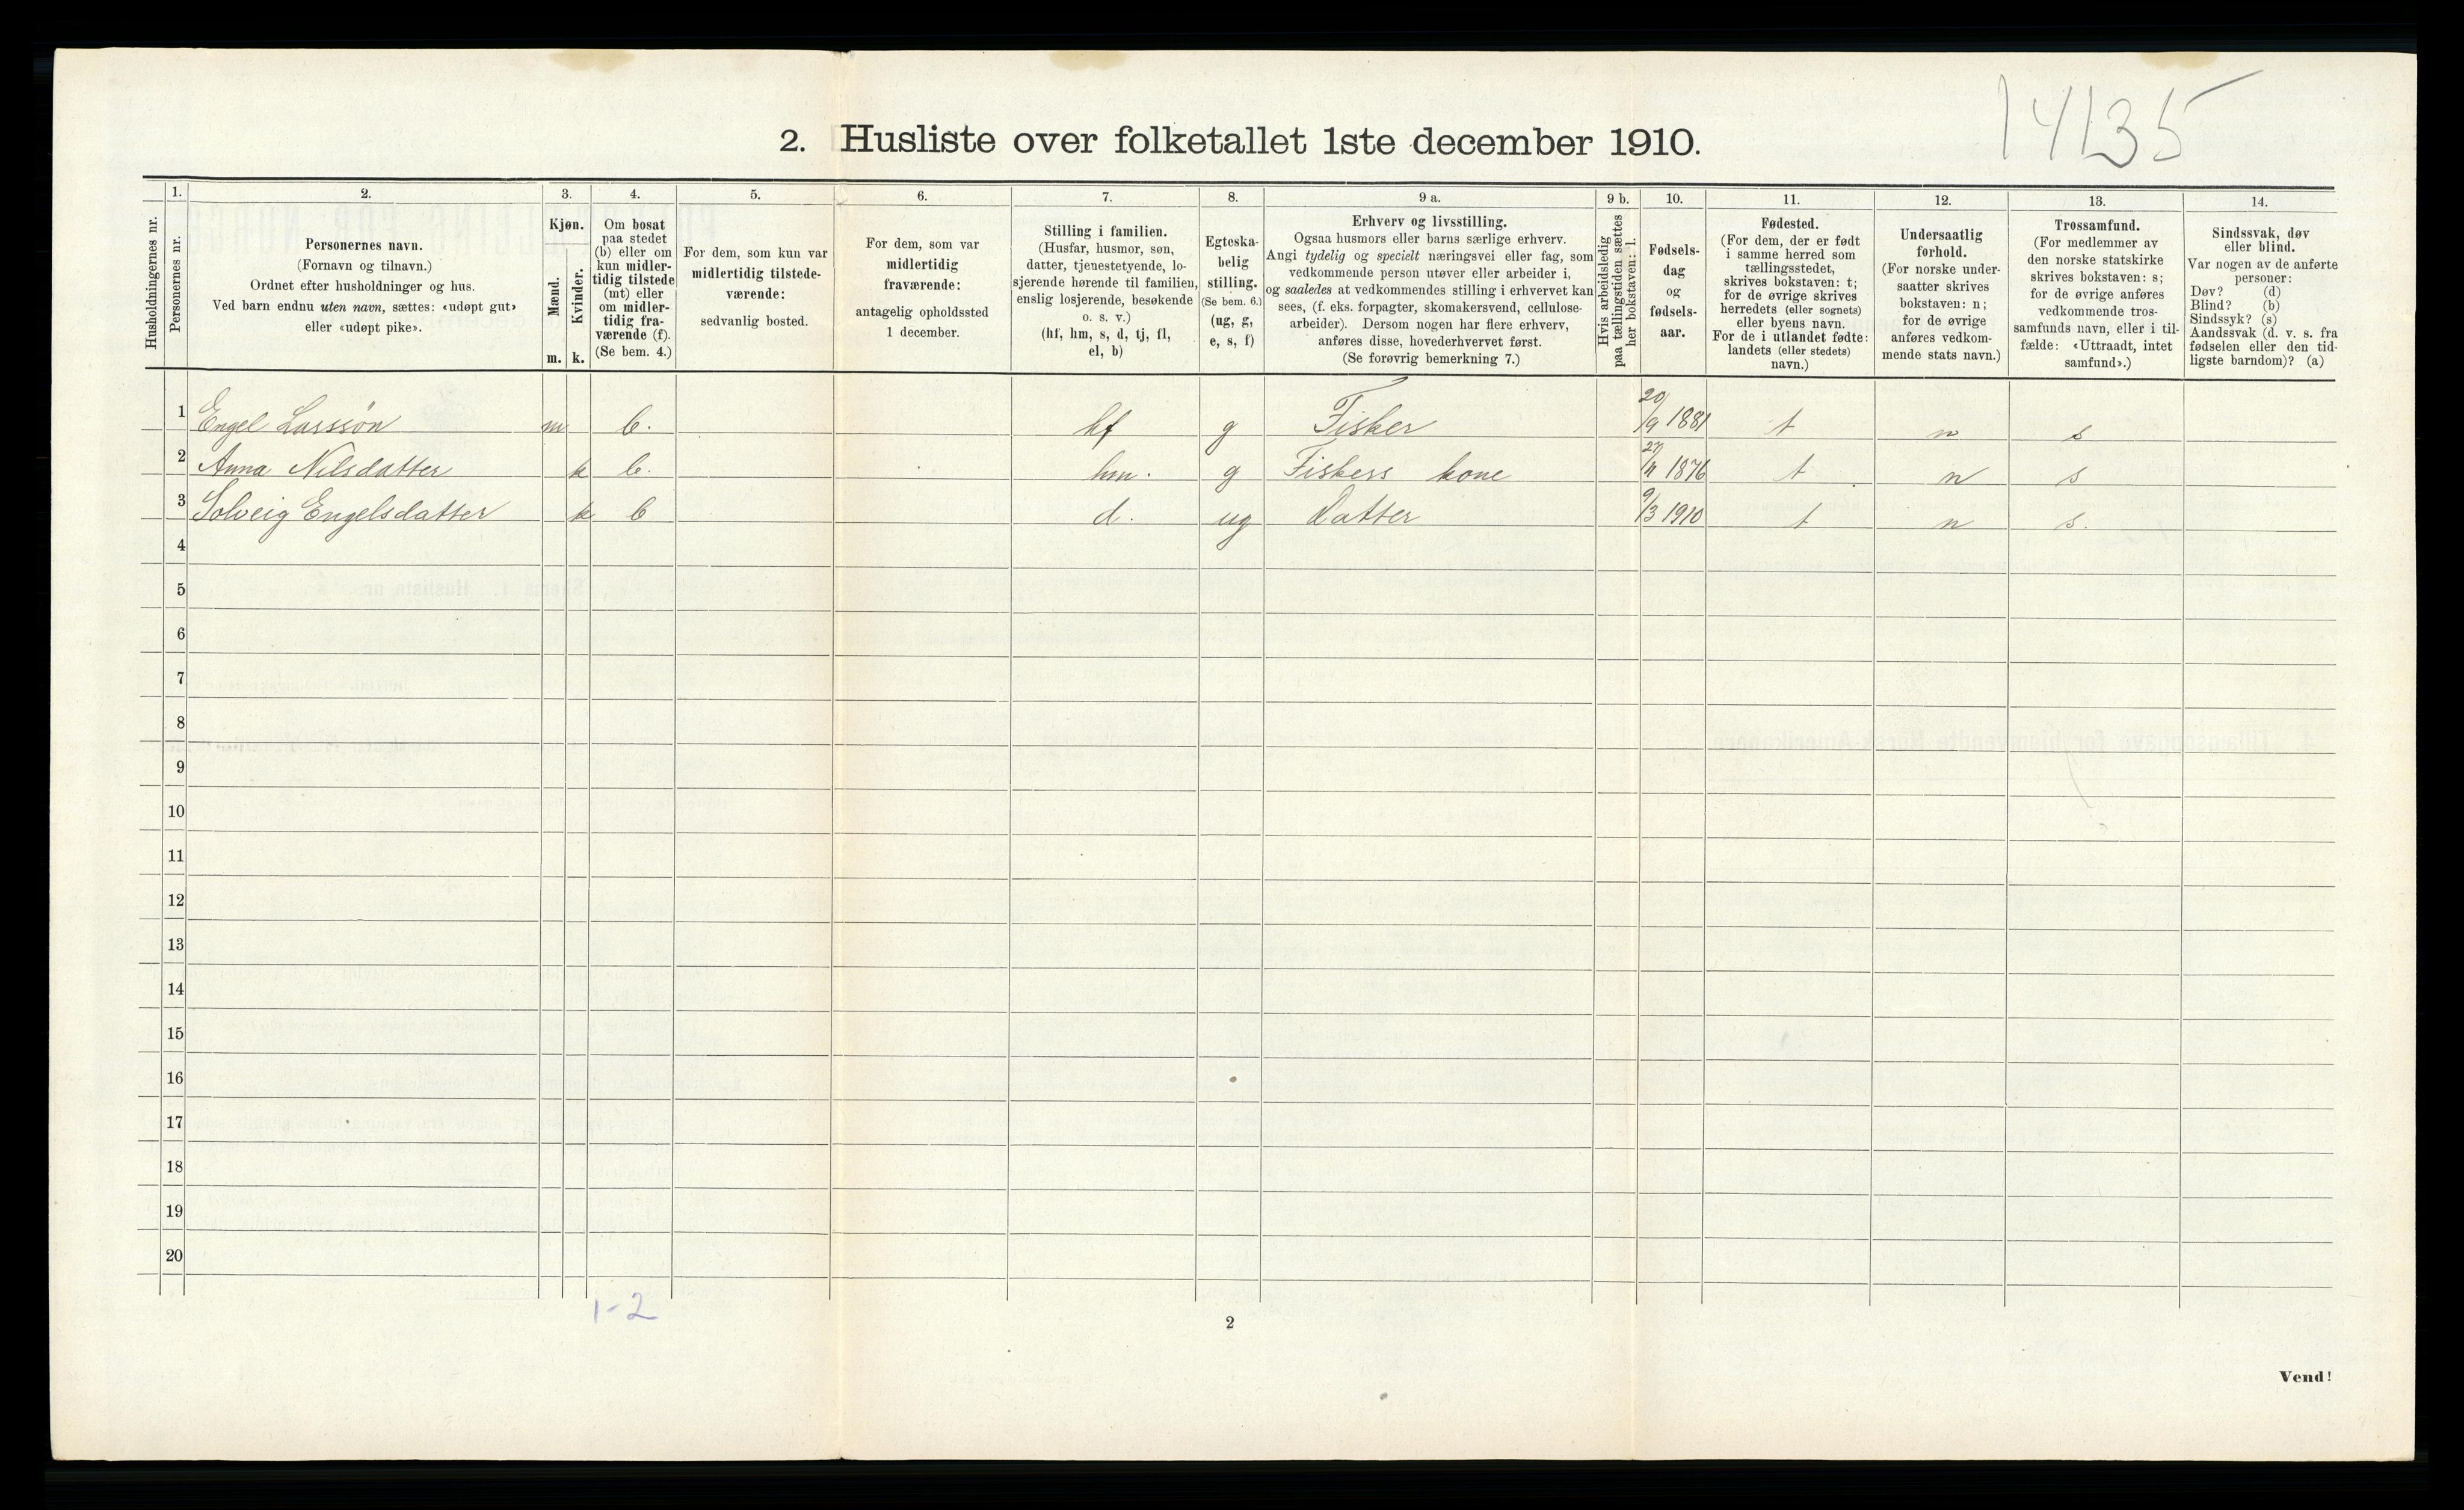 14135
2. Husliste over folketallet 1ste december 1910.
Husholdningernes nr.
1.
Personernes nr.
2.
Personernes navn.
(Fornavn og tilnavn.)
Ordnet efter husholdninger og hus.
Ved barn endnu uten navn, sættes: «udøpt gut»
eller «udøpt pike».
3.
Kjøn.
Mænd.
Kvinder.
m. k.
4.
Om bosat
paa stedet
(b) eller om
kun midler-
tidig tilstede
(mt) eller
om midler-
tidig fra-
værende (f).
(Se bem. 4.)
5.
For dem, som kun var
midlertidig tilstede-
værende:
sedvanlig bosted.
6.
For dem, som var
midlertidig
fraværende:
antagelig opholdssted
1 december.
7.
Stilling i familien.
(Husfar, husmor, søn,
datter, tjenestetyende, lo-
sjerende hørende til familien,
enslig losjerende, besøkende
o. s. v.)
(hf, hm, s, d, tj, fl,
el, b)
8.
Egteska-
belig
stilling.
(Se bem. 6.)
(ug, g,
e, s, f)
9 a.
Erhverv og livsstilling.
Ogsaa husmors eller barns særlige erhverv.
Angi tydelig og specielt næringsvei eller fag, som
vedkommende person utøver eller arbeider i,
og saaledes at vedkommendes stilling i erhvervet kan
sees, (f. eks. forpagter, skomakersvend, cellulose-
arbeider). Dersom nogen har flere erhverv,
anføres disse, hovederhvervet først.
(Se forøvrig bemerkning 7.)
9 b.
Hvis arbeidsledig
paa tællingstiden sættes
her bokstaven: l.
10.
Fødsels-
dag
og
fødsels-
aar.
11.
Fødested.
(For dem, der er født
i samme herred som
tællingsstedet,
skrives bokstaven: t;
for de øvrige skrives
herredets (eller sognets)
eller byens navn.
For de i utlandet fødte:
landets (eller stedets)
navn.)
12.
Undersaatlig
forhold.
(For norske under-
saatter skrives
bokstaven: n;
for de øvrige
anføres vedkom-
mende stats navn.)
13.
Trossamfund.
(For medlemmer av
den norske statskirke
skrives bokstaven: s;
for de øvrige anføres
vedkommende tros-
samfunds navn, eller i til-
fælde: «Uttraadt, intet
samfund».)
14.
Sindssvak, døv
eller blind.
Var nogen av de anførte
personer:
Døv? (d)
Blind? (b)
Sindssyk? (s)
Aandssvak (d. v. s. fra
fødselen eller den tid-
ligste barndom)? (a)
1 Engel Larssön m b. hf g Fisker 20/9 1881 t n s
2 Anna Nilsdatter k b. hm. g Fiskers kone 27/11 1876 t n s
3 Solveig Engelsdatter k b d. ug Datter 9/3 1910 t n s.
4
5
6
7
8
9
10
11
12
13
14
15
16
17
18
19
20
1-2
2
Vend!